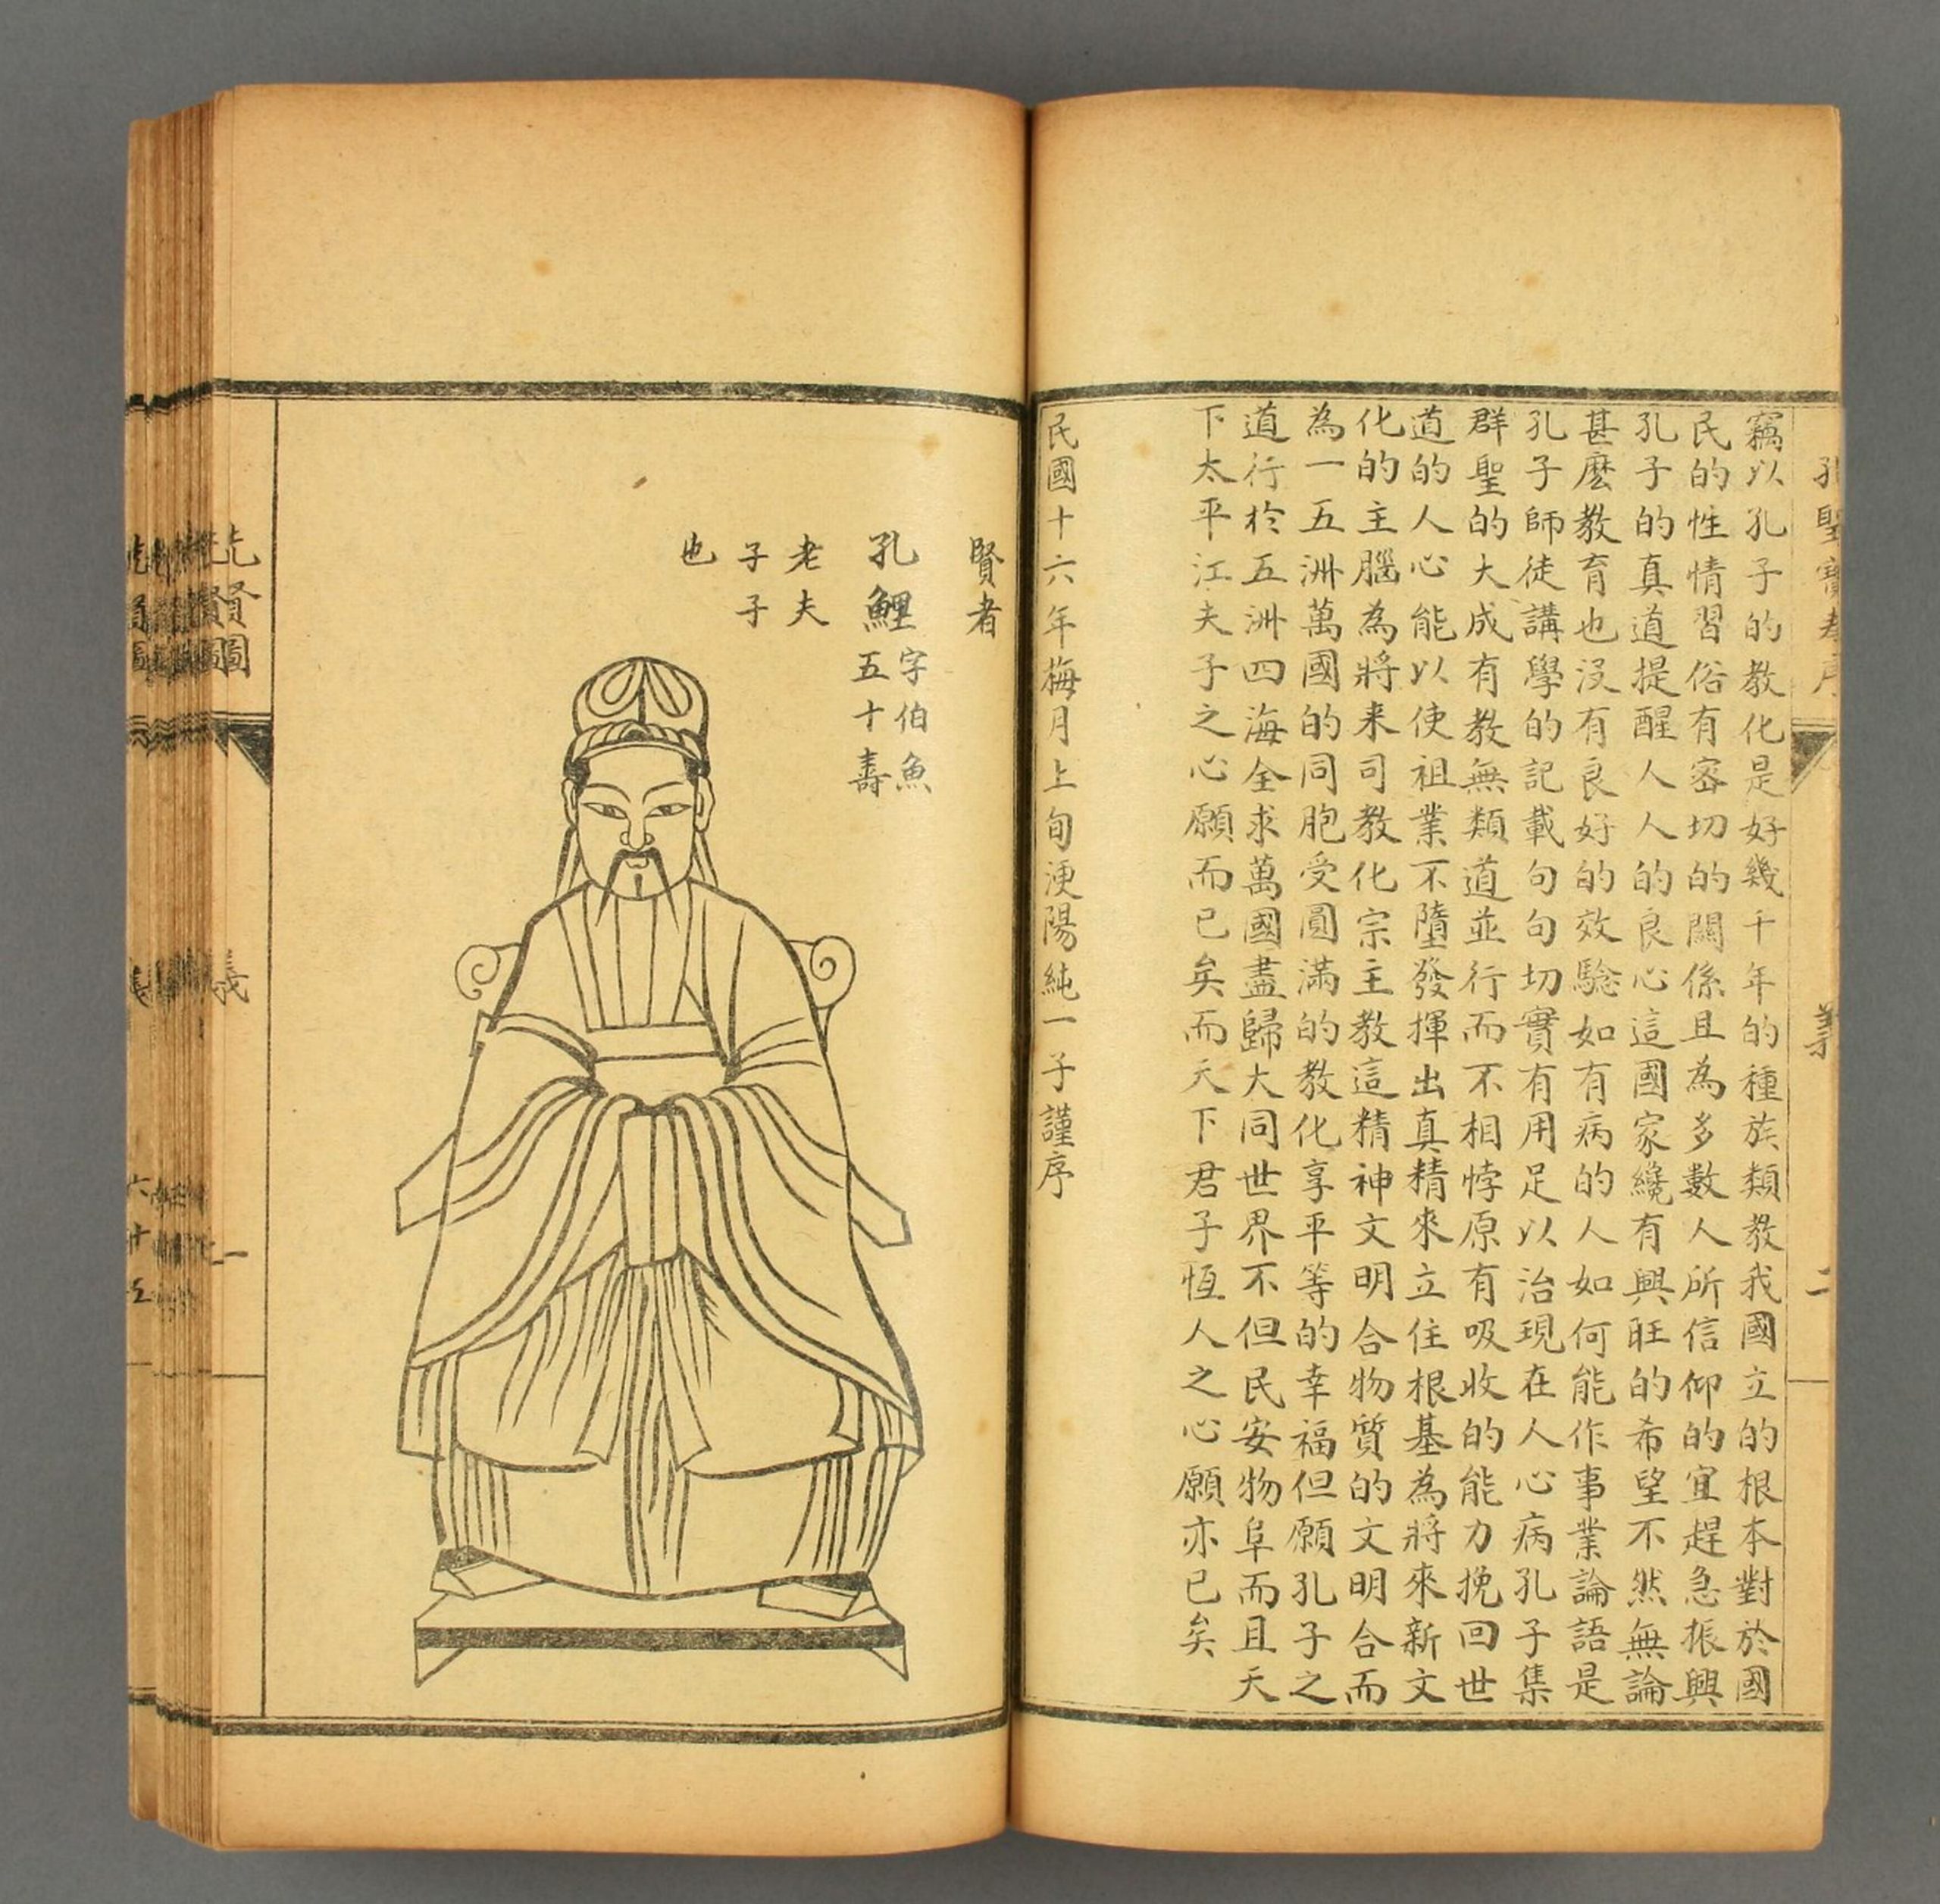 竊以孔子的教化是好幾千年的種族類教我國立的根本對於國
民的性情習俗有密切的關係且為多數人所信仰的宜趕急振興
孔子的真道提醒人人的良心這國家纔有興旺的希望不然無論
甚麽教育也沒有良好的效驗如有病的人如何能作事業論語是
孔子師徒講學的記載句句切實有用足以治現在人心病孔子集
群聖的大成有教無類道並行而不相悖原有吸收的能力挽回世
道的人心能以使祖業不墮發揮出真精來立住根基為將來新文
化的主腦為將来司教化宗主教這精神文明合物質的文明合而
為一五洲萬國的同胞受圓滿的教化享平等的幸福但願孔子之
道行於五洲四海全求萬國盡歸大同世界不但民安物阜而且天
下太平江夫子之心願而已矣而天下君子恆人之心願亦已矣
民國十六年梅月上旬浭陽純一子謹序
賢者
孔鯉
字伯魚
五十壽
老夫
子子
也
先賢圖
義
一